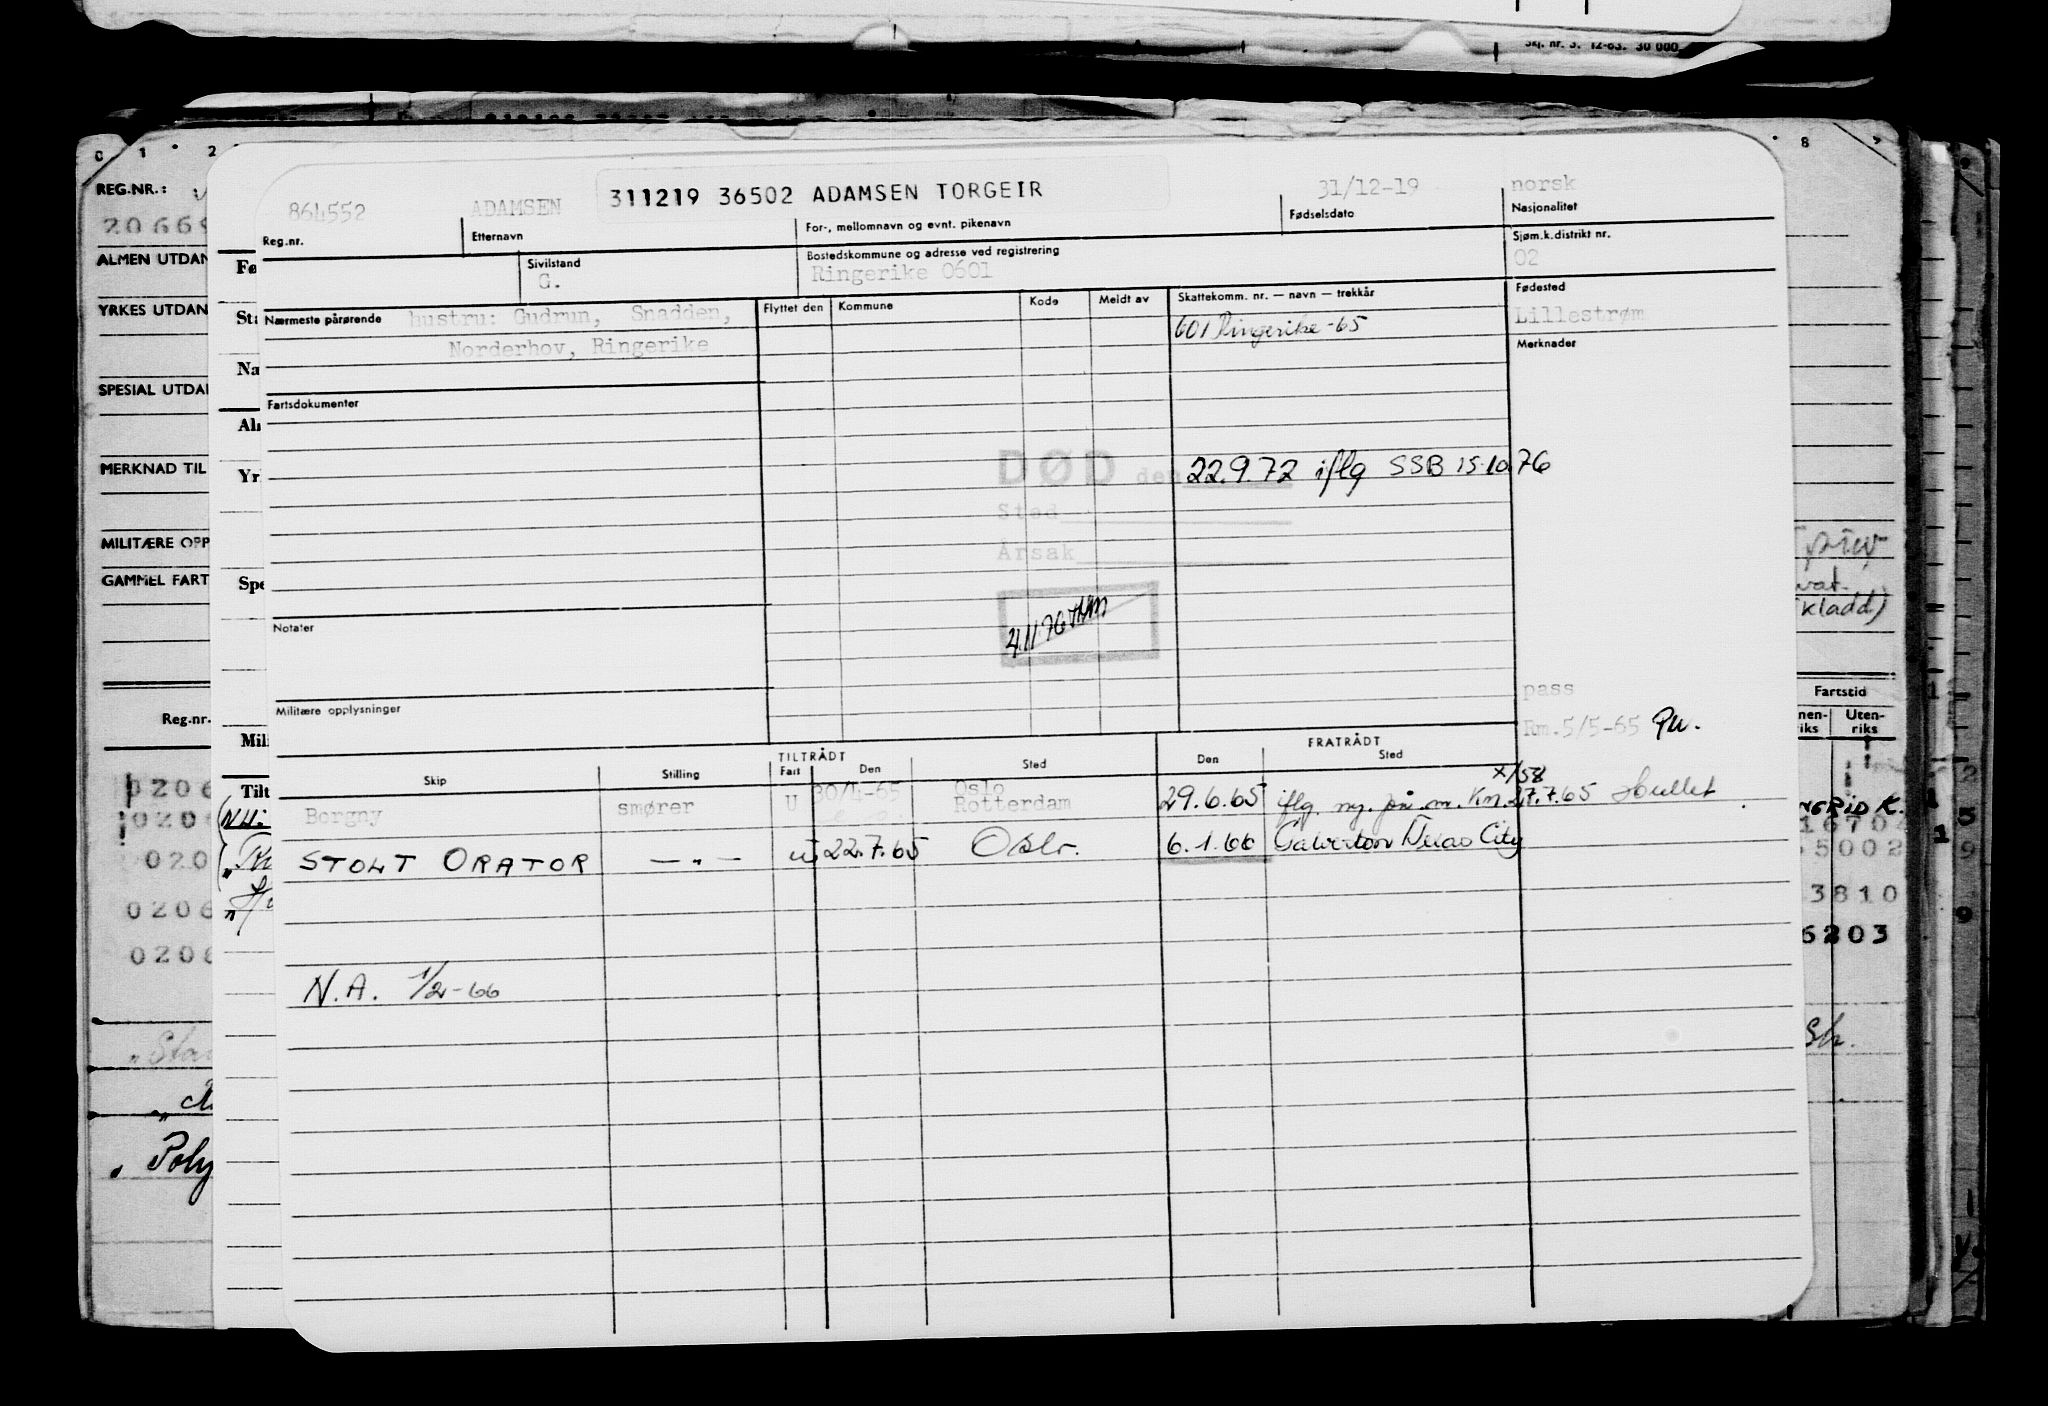 Skj. nr. 3. 12-63. 30 000
REG.NR.:
ALMEN UTDAN
YRKES UTDAN
SPESIAL UTDA
MERKNAD TIL
MILITÆRE OPP
GAMMEL FART
Reg.nr.
864552 ADAMSEN 311219 36502 ADAMSEN TORGEIR 31/12-19 norsk
Reg.nr. Etternavn For-, mellomnavn og evnt. pikenavn Fødselsdato Nasjonalitet
Sivilstand Bostedskommune og adresse ved registrering Sjøm.k.distrikt nr.
G. Ringerike 0601 02
Nærmeste pårørende hustru: Gudrun, Snadden, Flyttet den Kommune Kode Meldt av Skattekomm. nr. — navn — trekkår Fødested
Norderhov, Ringerike 601 Ringerike -65 Lillestrøm
Merknader
Fartsdokumenter
DØD den 22.9.72 iflg SSB 15.10.76
Sted
Årsak
Notater
4.11.76
Militære opplysninger
pass
Rm. 5/5-65
TILTRÅDT FRATRÅDT
Skip Stilling Fart Den Sted Den Sted
Borgny smører U 30/4-65 Oslo Rotterdam 29.6.65 iflg. m. Km. 27.7.65 x/58
STOLT ORATOR — " — U 22.7.65 Oslo. 6.1.66 Texas City
N.A. 1/2-66
Fartstid
Uten-
riks
vat.
(kladd)
NGRID K.
3810
6203
Poly